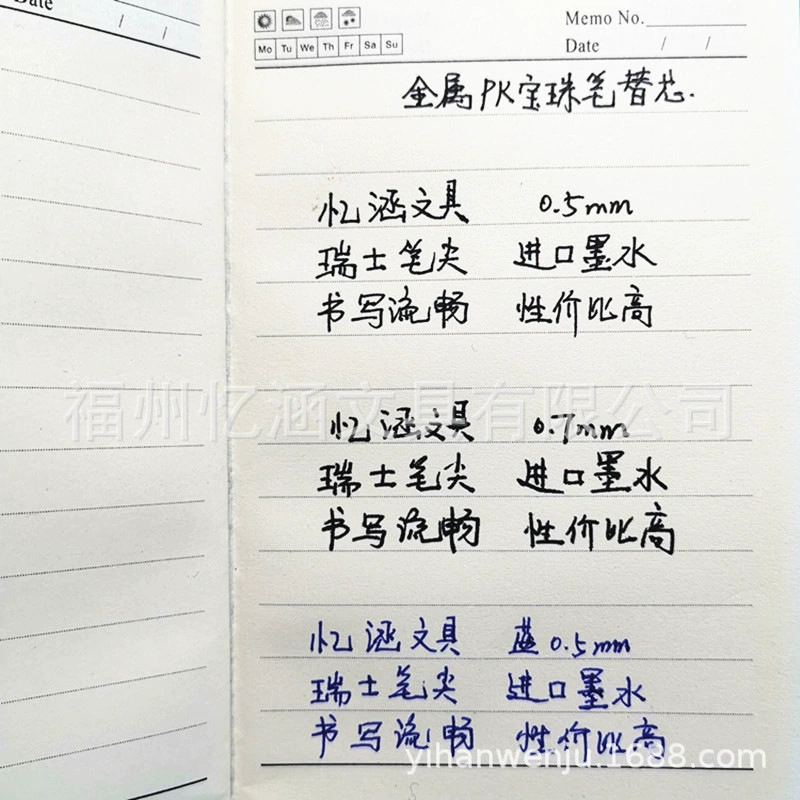 Date
/ /
Memo No.
Mo Tu We Th Fr Sa Su
Date / /
金属PK宝珠笔替芯.
忆涵文具 0.5mm
瑞士笔尖 进口墨水
书写流畅 性价比高
福州忆涵文具有限公司
忆涵文具 0.7mm
瑞士笔尖 进口墨水
书写流畅 性价比高
忆涵文具 蓝0.5mm
瑞士笔尖 进口墨水
书写流畅 性价比高
yihanwenju.1688.com